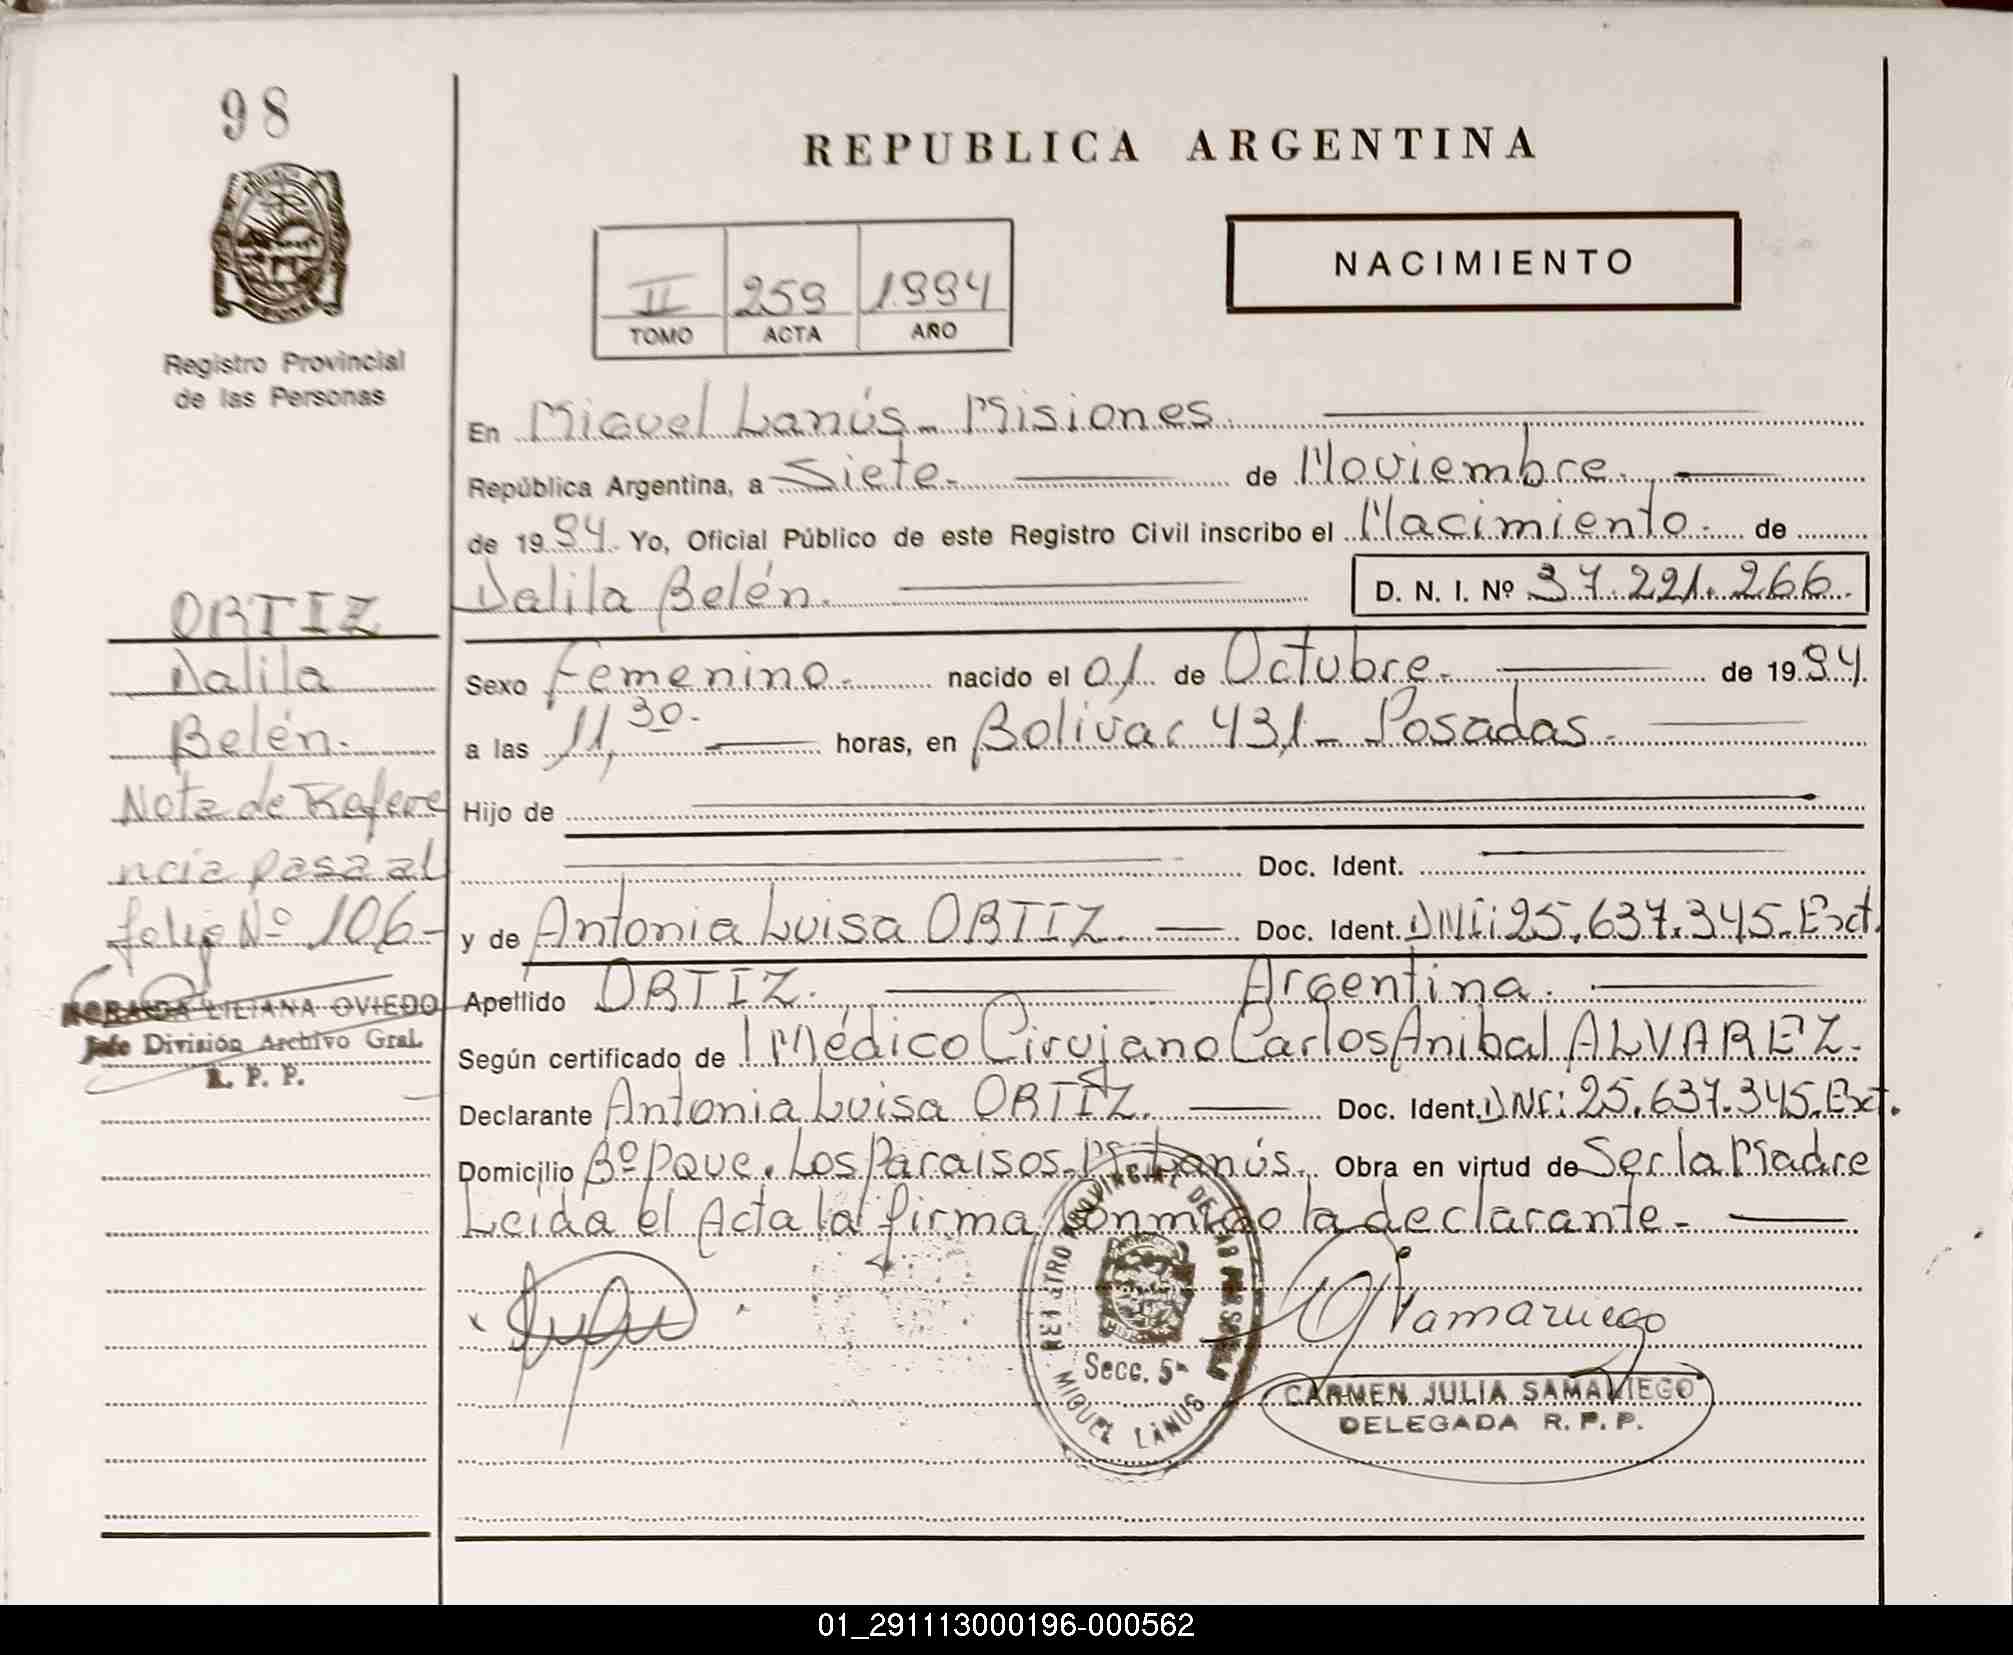 98
REPUBLICA ARGENTINA
NACIMIENTO
II 259 1994
TOMO ACTA AÑO
Registro Provincial
de las Personas
En Miguel Lanús - Misiones.
República Argentina, a Siete. de Noviembre.
de 1994. Yo, Oficial Público de este Registro Civil inscribo el Nacimiento. de
Dalila Belén. D. N. I. Nº 37.221.266.
ORTIZ
Dalila
Belén.
Nota de Refere
ncia pasa al
folio Nº 106-
NORANDA LILIANA OVIEDO
Jefe División Archivo Gral.
R. P. P.
Sexo Femenino. nacido el 01 de Octubre. de 1994.
a las 11,30. horas, en Bolivar 431 - Posadas.
Hijo de
Doc. Ident.
y de Antonia Luisa ORTIZ. Doc. Ident. DNI: 25.637.345. Ext.
Apellido ORTIZ. Argentina.
Según certificado de l Médico Cirujano Carlos Anibal ALVAREZ.
Declarante Antonia Luisa ORTIZ. Doc. Ident. DNI: 25.637.345. Ext.
Domicilio Bº Pque. Los Paraisos. M. Lanús. Obra en virtud de Ser la Madre
Leida el Acta la firma conmigo la declarante.
REGISTRO PROVINCIAL DE LAS PERSONAS
Secc. 5ª
MIGUEL LANUS
Samaniego
CARMEN JULIA SAMANIEGO
DELEGADA R. P. P.
01_291113000196-000562